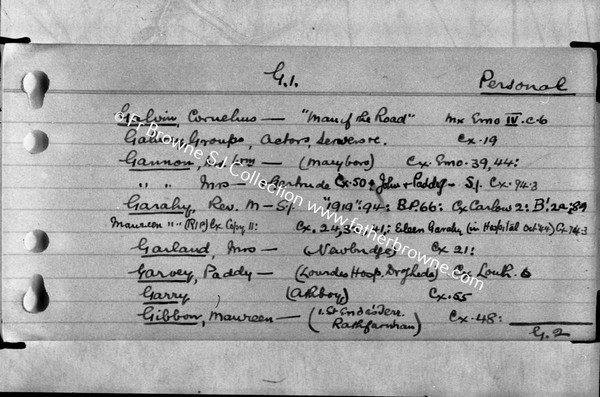 G.1. Personal
Galvin, Cornelius — "Man of the Road" Mx Emo IV. c. 6
Groups, Actors, Servers etc. Cx. 19
Gannon, — (Maryboro) Cx. Emo. 39, 44:
" " Mrs — Gertrude Cx. 50 & John & Paddy — S.J. Cx. 94.3
Garahy, Rev. M — S.J. "1919". 94: B.P. 66: Cx Carlow 2: 89
Maureen " " (RIP) Cx Copy, 11: Cx. 24, 41: Eileen Garahy (in Hospital Oct '44) Cx. 94.3
Garland, Mrs — (Newbridge) Cx 21:
Garvey, Paddy — (Lourdes Hosp. Drogheda) Cx Louth. 6
Garry, (Athboy) Cx. 55
Gibbon, Maureen — (1. St Enda's Terr. Rathfarnham) Cx. 48:
G. 2
© Fr Browne S.J. Collection www.fatherbrowne.com